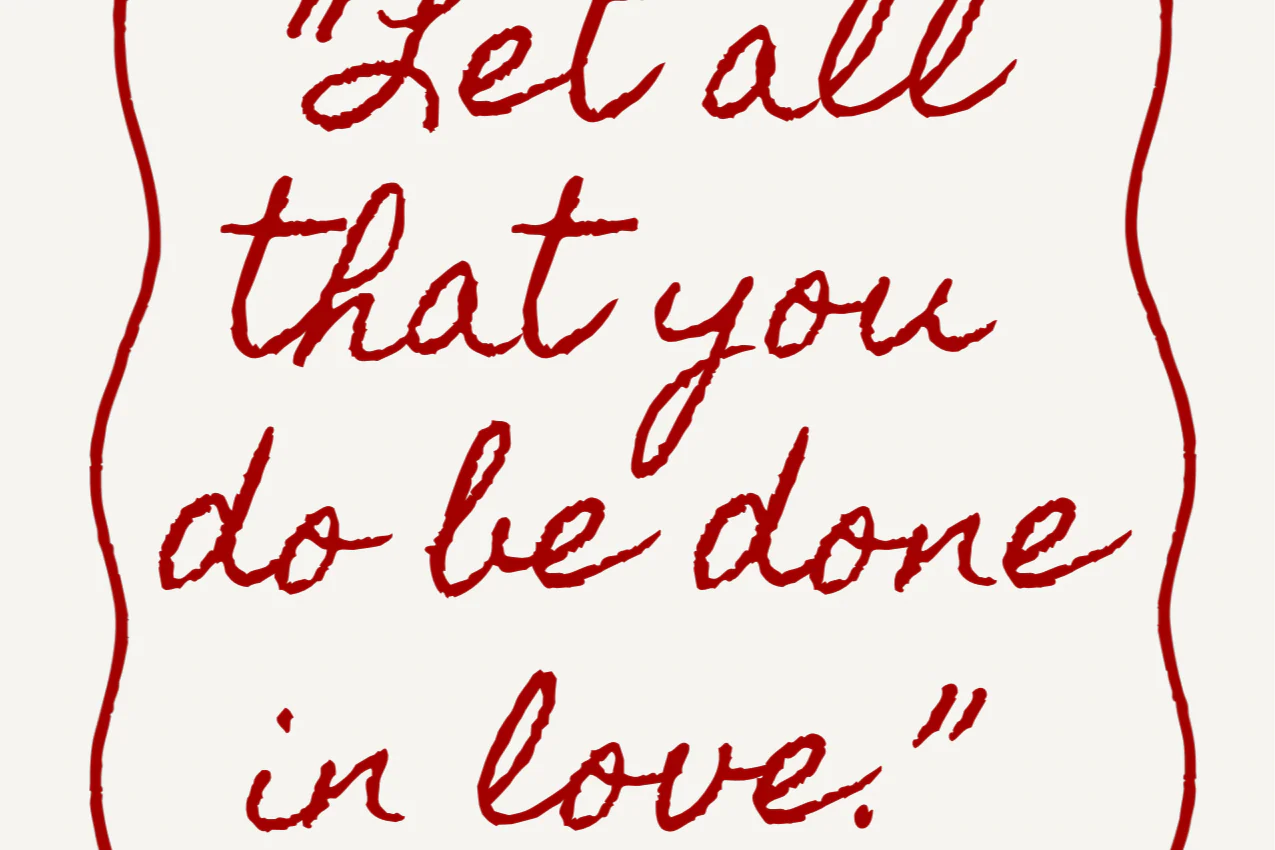 "Let all
that you
do be done
in love."